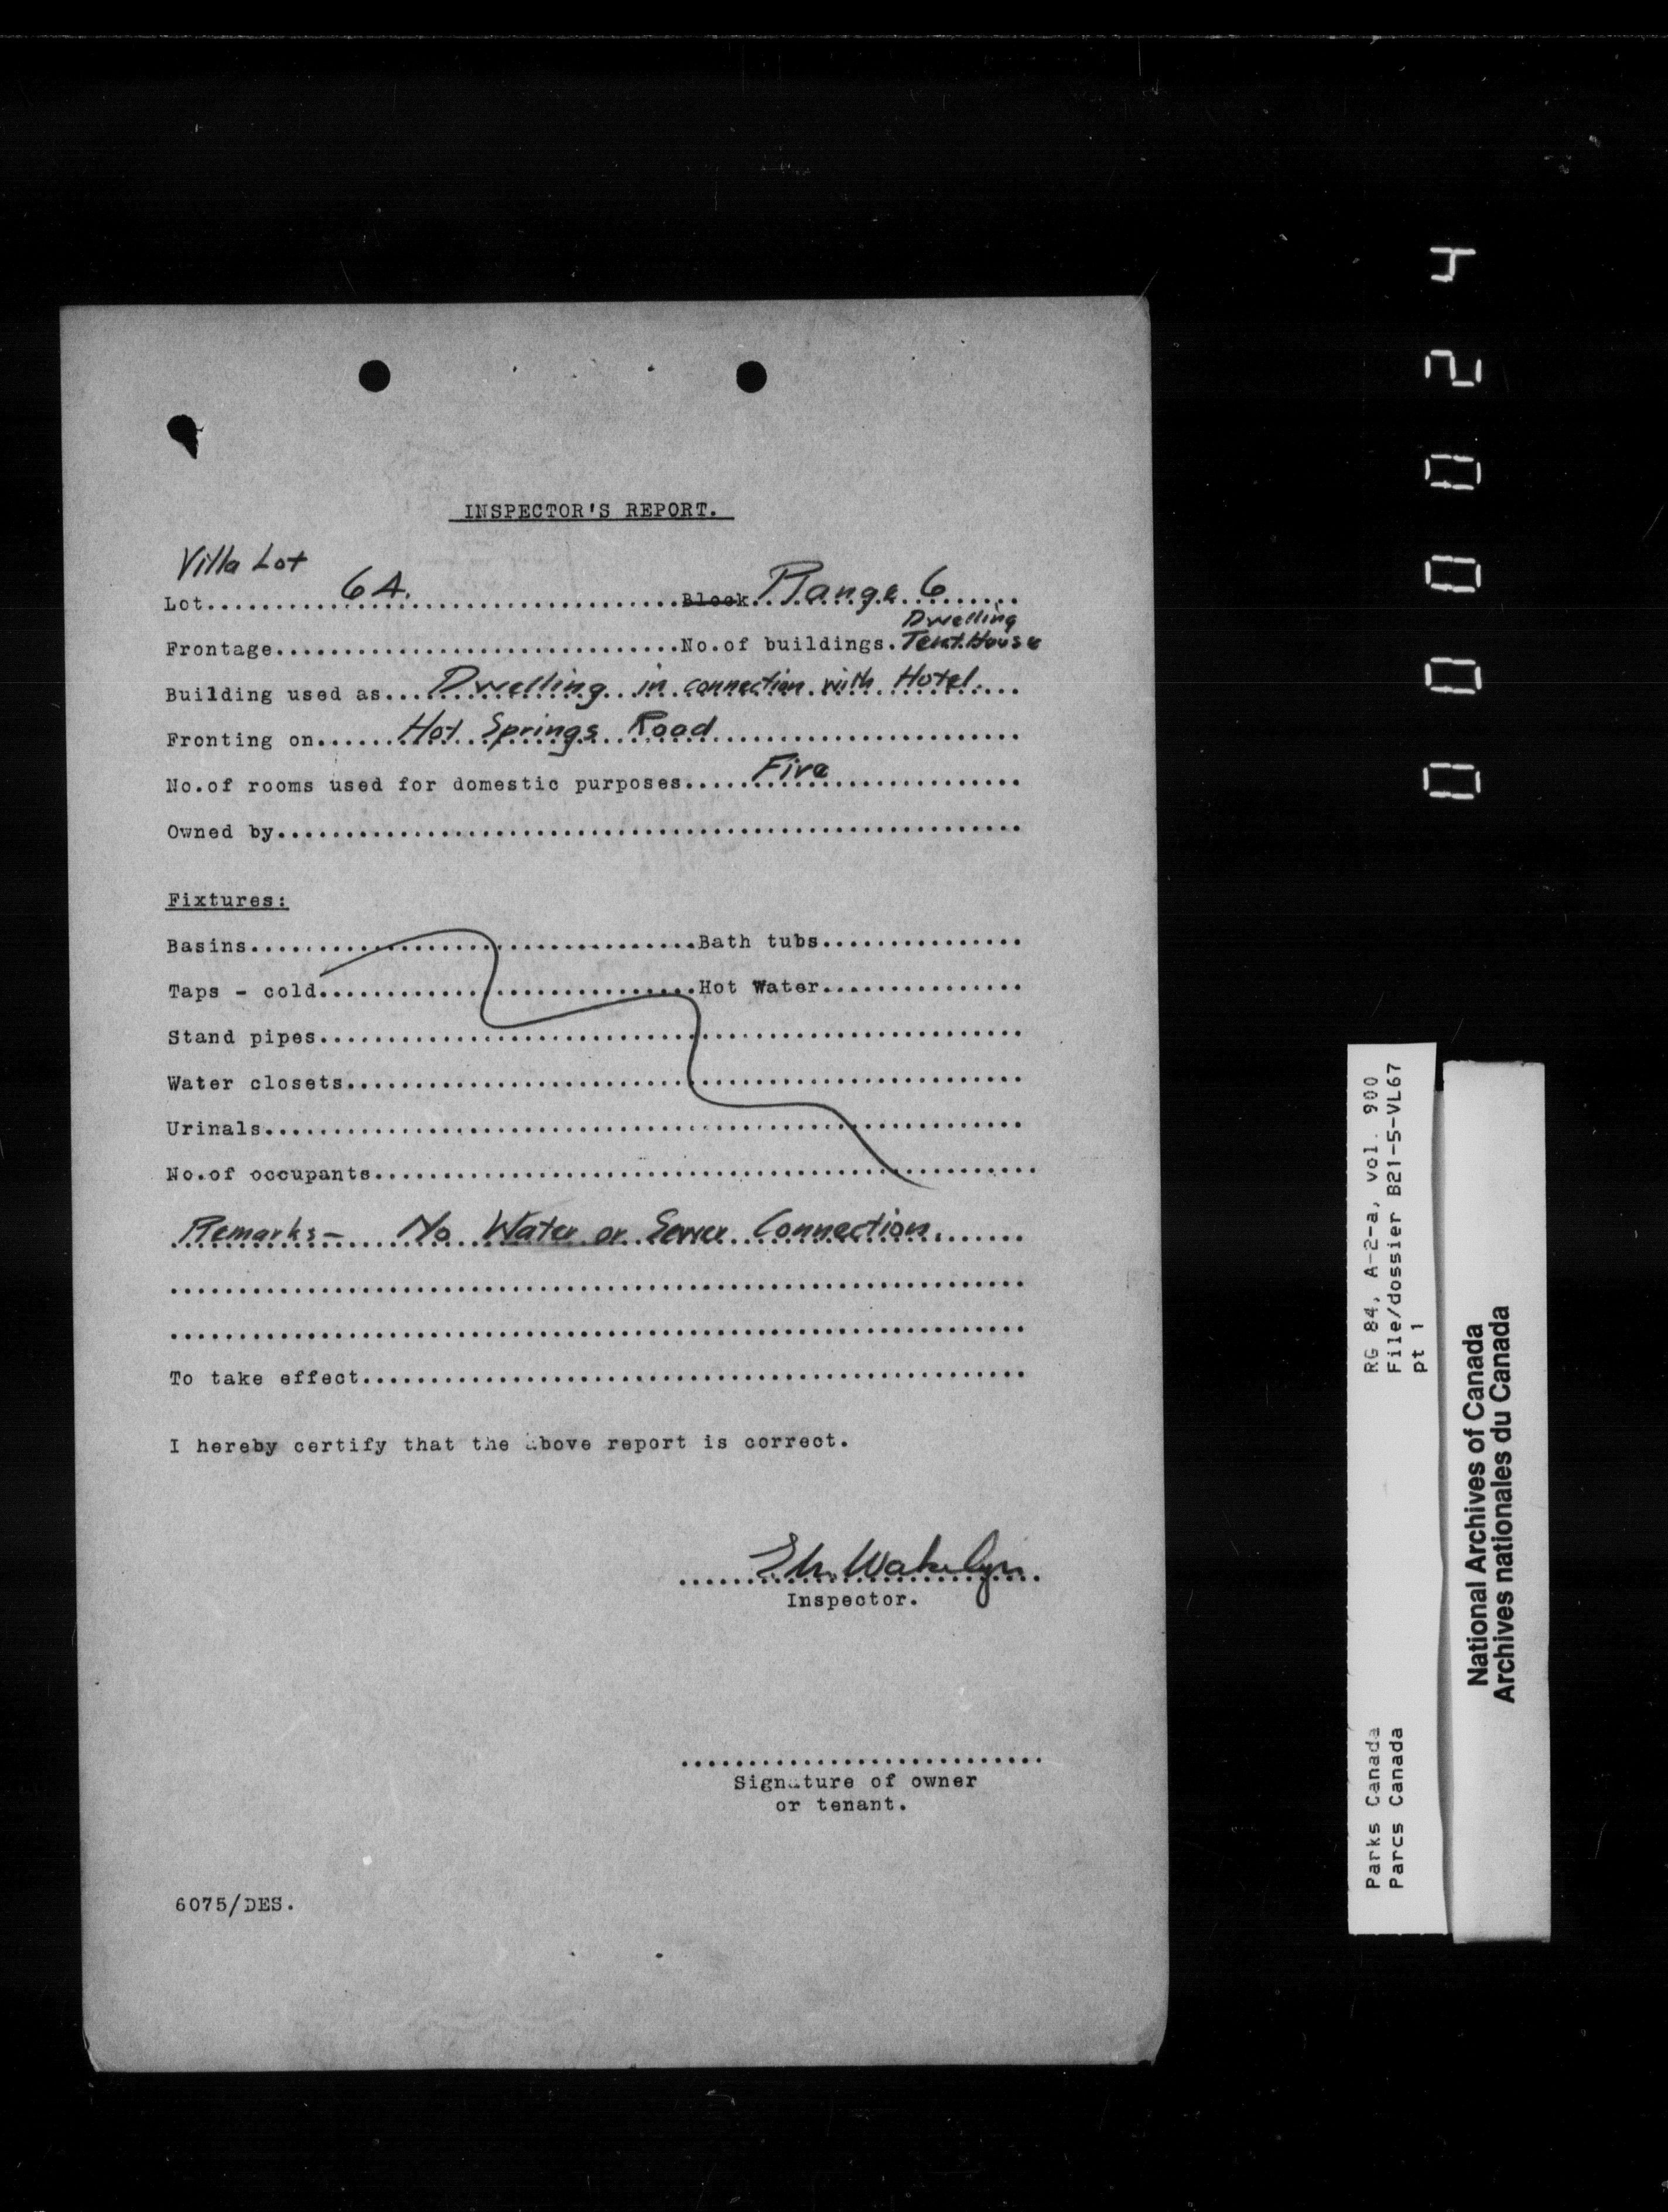 INSPECTOR'S REPORT.
Villa Lot
Lot..........6A...................Block...Range 6......
Dwelling
Frontage..............................No.of buildings.Tent.House
Building used as...Dwelling in connection with Hotel....
Fronting on......Hot Springs Road.......................
No.of rooms used for domestic purposes.....Five..............
Owned by.......................................................
Fixtures:
Basins.................................Bath tubs...............
Taps - cold............................Hot Water...............
Stand pipes....................................................
Water closets..................................................
Urinals........................................................
No.of occupants.................................................
Remarks:- No Water or Sewer Connection.......
...............................................................
...............................................................
To take effect.................................................
I hereby certify that the above report is correct.
Wakelyn
Inspector.
...........................
Signature of owner
or tenant.
6075/DES.
000024
RG 84, A-2-a, vol. 900
File/dossier B21-5-VL67
pt 1
Parks Canada
Parcs Canada
National Archives of Canada
Archives nationales du Canada